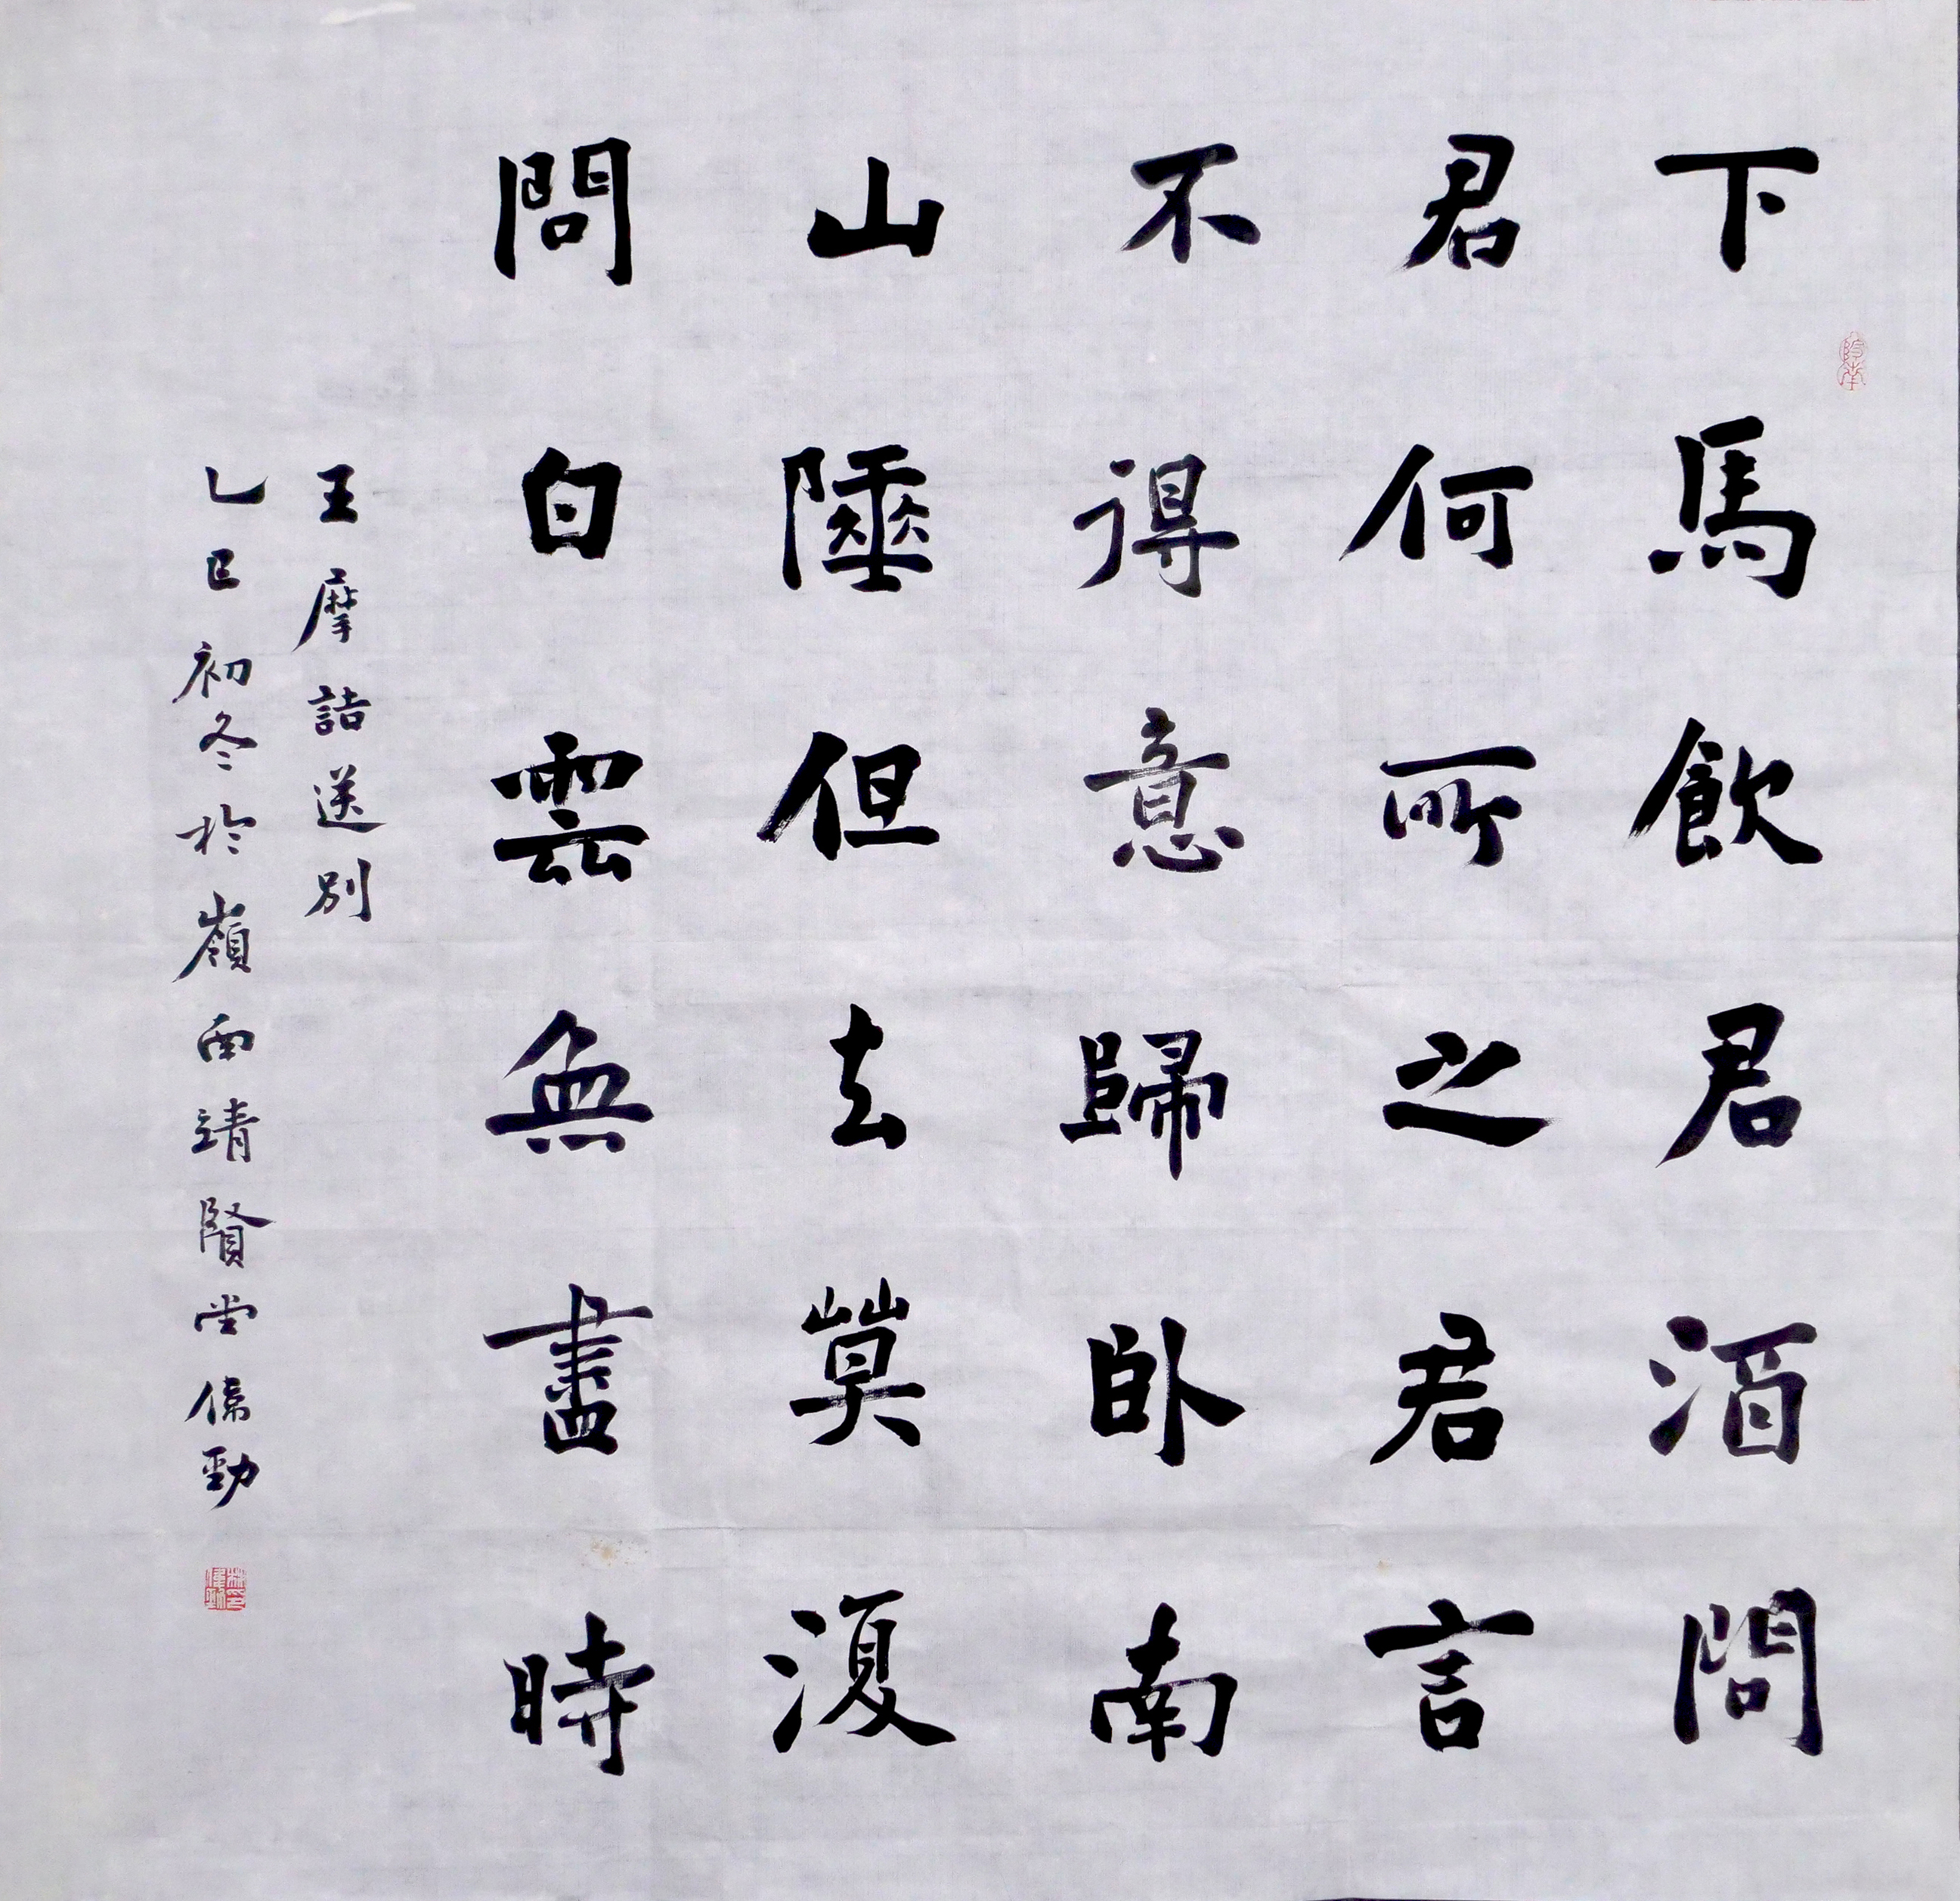 下馬飲君酒問
君何所之君言
不得意歸卧南
山陲但去莫復
問白雲無盡時
王摩詰送別
乙巳初冬於嶺西靖賢堂偉勁